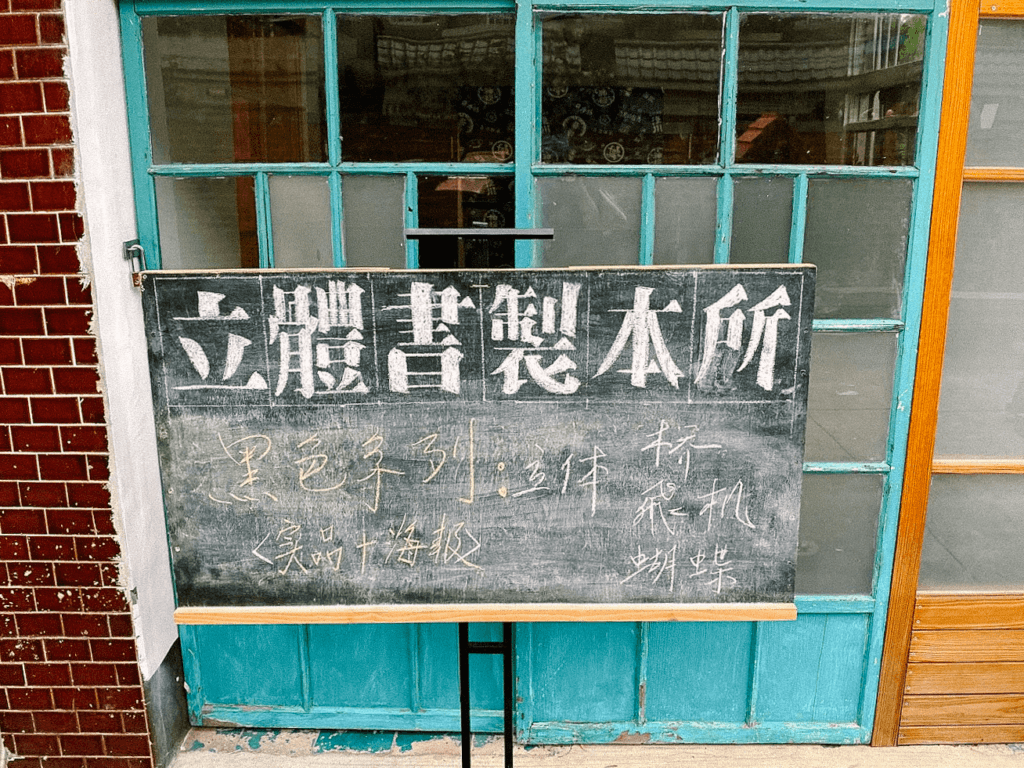 立體書製本所
黑色系列：立体 桥
飛机
〈实品＋海報〉
蝴蝶